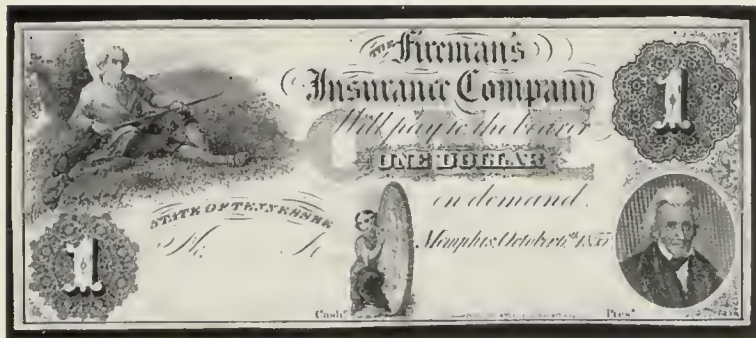 THE Fireman's
Insurance Company
Will pay to the bearer
ONE DOLLAR
on demand
STATE OF TENNESSEE
No.
Memphis, October
1
1
Cashr.
Prest.